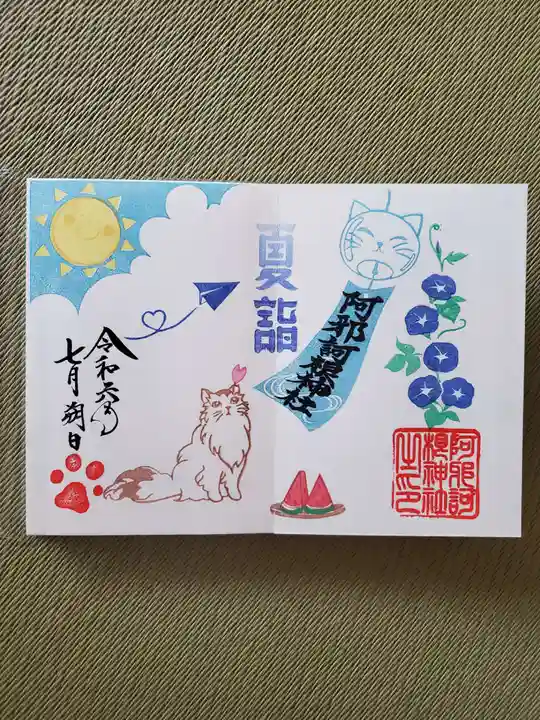 阿邪訶根神社
夏詣
令和六年
七月朔日
阿邪訶
根神社
之印